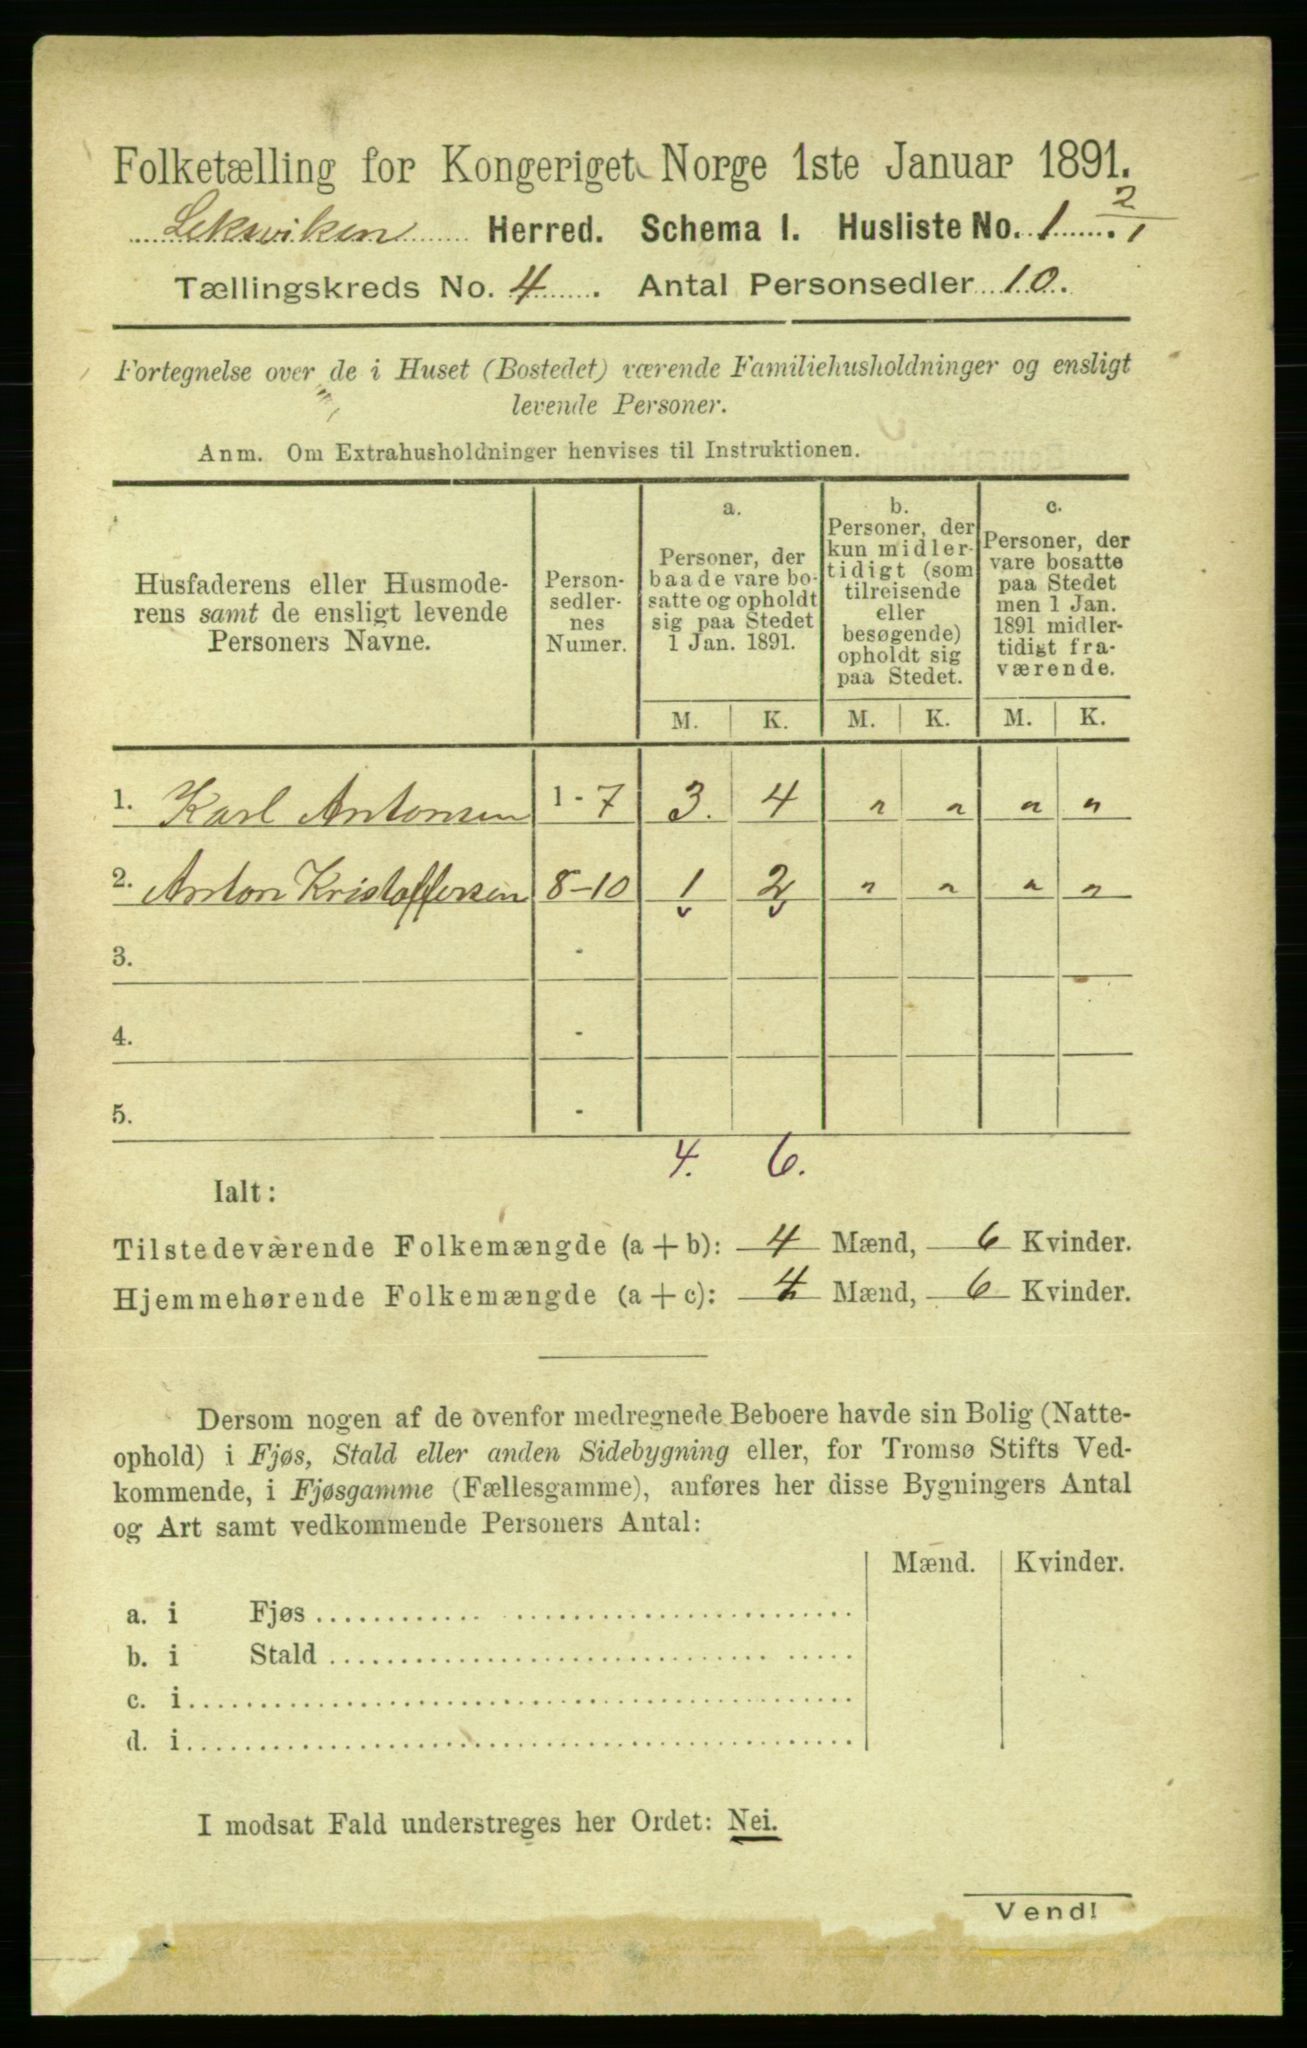 Folketælling for Kongeriget Norge 1ste Januar 1891.
Leksviken Herred. Schema I. Husliste No. 1. 2/1
Tællingskreds No. 4. Antal Personsedler 10.
Fortegnelse over de i Huset (Bostedet) værende Familiehusholdninger og ensligt
levende Personer.
Anm. Om Extrahusholdninger henvises til Instruktionen.
Husfaderens eller Husmode-
rens samt de ensligt levende
Personers Navne.
Person-
sedler-
nes
Numer.
a.
Personer, der
baade vare bo-
satte og opholdt
sig paa Stedet
1 Jan. 1891.
b.
Personer, der
kun midler-
tidigt (som
tilreisende
eller
besøgende)
opholdt sig
paa Stedet.
c.
Personer, der
vare bosatte
paa Stedet
men 1 Jan.
1891 midler-
tidigt fra-
værende.
M. K. M. K. M. K.
1. Karl Antonsen 1-7 3. 4 " " " "
2. Anton Kristoffersen 8-10 1 2 " " " "
3. -
4. -
5. -
4. 6.
Ialt:
Tilstedeværende Folkemængde (a + b): 4 Mænd, 6 Kvinder.
Hjemmehørende Folkemængde (a + c): 4 Mænd, 6 Kvinder.
Dersom nogen af de ovenfor medregnede Beboere havde sin Bolig (Natte-
ophold) i Fjøs, Stald eller anden Sidebygning eller, for Tromsø Stifts Ved-
kommende, i Fjøsgamme (Fællesgamme), anføres her disse Bygningers Antal
og Art samt vedkommende Personers Antal:
Mænd. Kvinder.
a. i Fjøs
b. i Stald
c. i
d. i
I modsat Fald understreges her Ordet: Nei.
Vend!